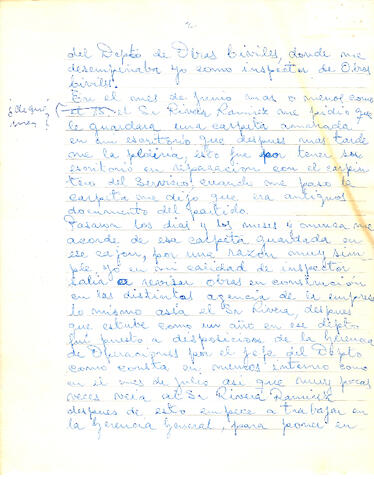 2
del Depto de Obras Civiles, donde me
desempeñaba yo como inspector de Obras
Civiles.
En el mes de junio mas o menos como
¿de qué mes?
el 15, el Sr Rivera Ramirez me pidio que
le guardara una carpeta amarilla
en un escritorio que despues mas tarde
me la pediria, esto fue por tener su
escritorio en reparacion con el carpin
tero del Servicio cuando me paso la
carpeta me dijo que era antiguos
documento del partido.
Pasaron los dias y los meses y nunca me
acorde de esa carpeta guardada en
ese cajon, por una razon muy sim
ple, yo en mi calidad de inspector
salia a revisar obras en construcción
en las distintas agencia de la empresa
lo mismo asia el Sr Rivera, despues
que estube como un año en ese depto
fui puesto a disposicion de la Gerencia
de Operaciones por el jefe del Depto
como consta en memos interno como
en el mes de julio asi que muy pocas
veces veia al Sr Rivera Ramirez
despues de esto empece a trabajar en
la Gerencia General, para poner en